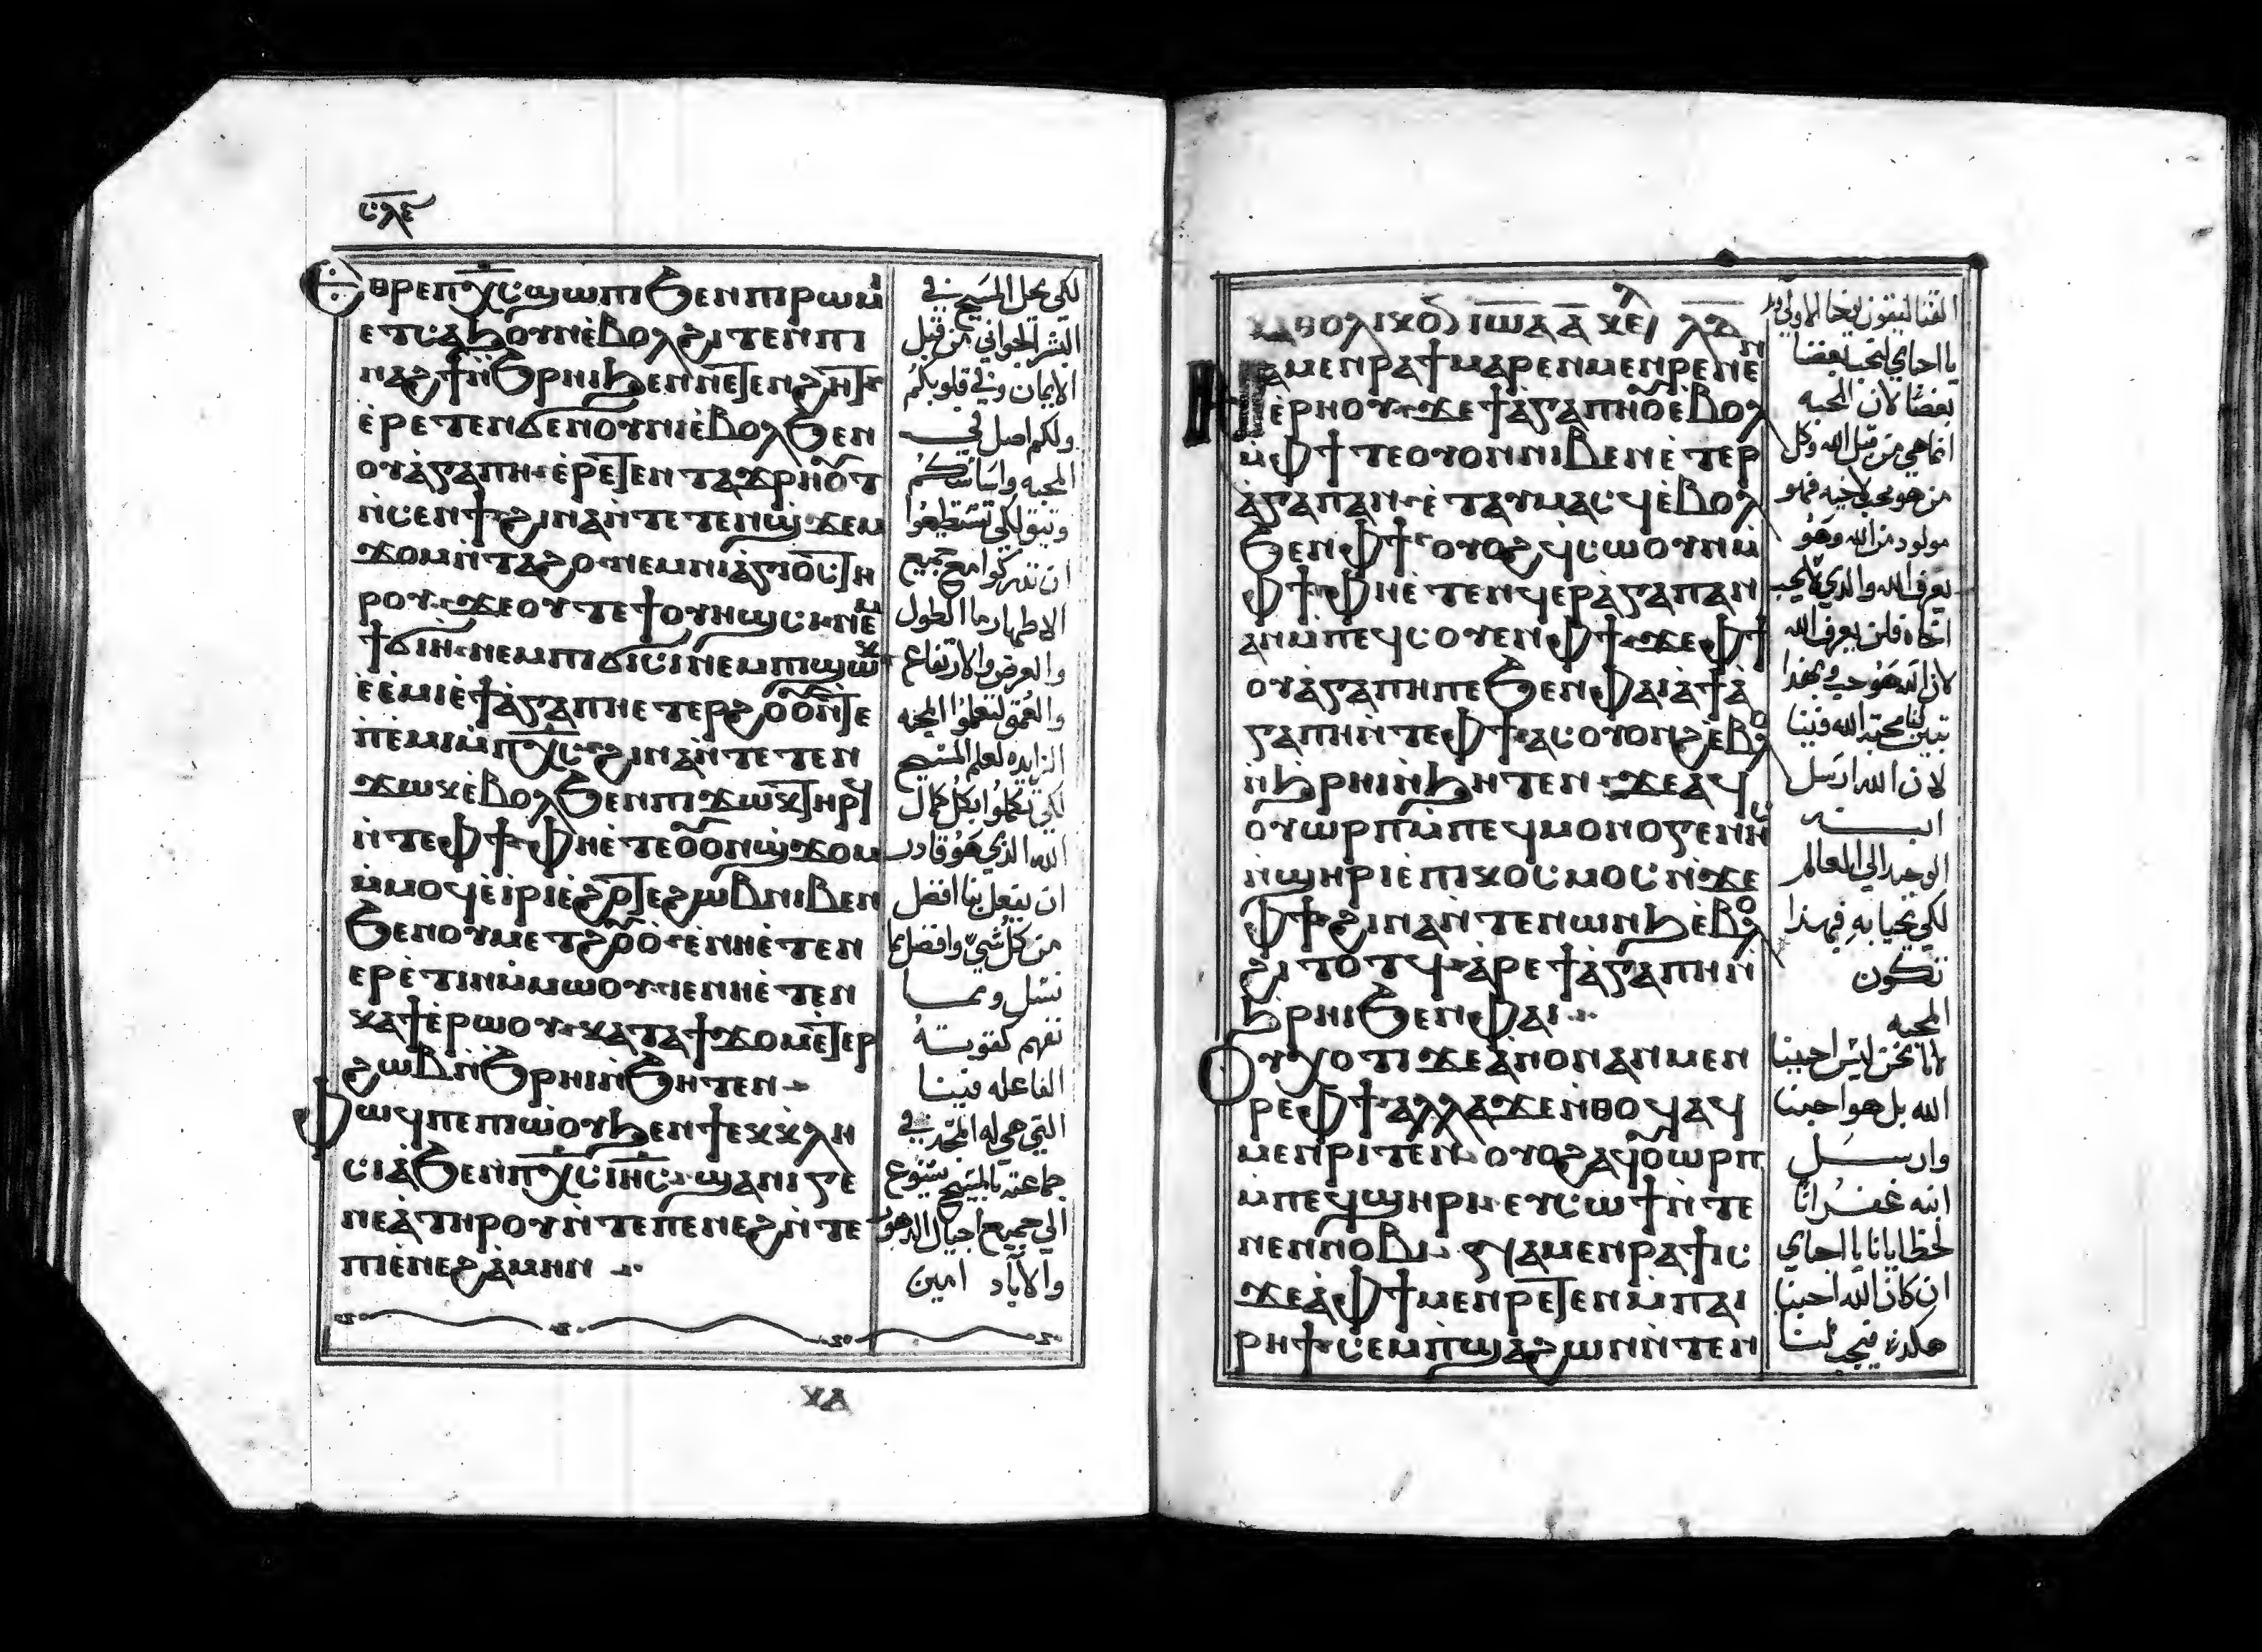 ⲥⲗⲉ
Ⲉⲑⲣⲉⲡⲭ̅ⲥ̅ϣⲱⲡⲓϧⲉⲛⲡⲓⲣⲱⲙⲓ
ⲉⲧⲥⲁϧⲟⲩⲛⲉ̀ⲃⲟⲗϩⲓⲧⲉⲛⲡⲓ
ⲛⲁϩϯⲛ̀ϧⲣⲏⲓϧⲉⲛⲛⲉⲧⲉⲛϩⲏⲧ
ⲉ̀ⲣⲉⲧⲉⲛϭⲉⲛⲟⲩⲛⲓⲉ̀ⲃⲟⲗϧⲉⲛ
ⲟⲩⲁ̀ⲅⲁⲡⲏ ⲉ̀ⲣⲉⲧⲉⲛⲧⲁϫⲣⲏⲟⲩⲧ
ⲛ̀ⲥⲉⲛϯ ϩⲓⲛⲁⲛ̀ⲧⲉⲧⲉⲛϣϫⲉⲙ
ϫⲟⲙⲛ̀ⲧⲁϩⲟ ⲛⲉⲙⲛⲓⲁ̀ⲅⲓⲟⲥⲧⲏ
ⲣⲟⲩ ϫⲉⲟⲩⲧⲉϯⲟⲩⲏϣⲥⲓ ⲛⲉⲙ
ϯϭⲓⲏ ⲛⲉⲙⲡⲓϭⲓⲥⲓⲛⲉⲙⲡⲓϣⲱⲕ
ⲉ̀ⲉ̀ⲙⲓⲉ̀ϯⲁ̀ⲅⲁⲡⲏⲉⲧⲉⲣϩⲟⲩⲟⲛ̀ⲧⲉ
ⲡⲉ̀ⲙⲓⲙ̀ⲡⲭ̅ⲥ̅ ϩⲓⲛⲁⲛ̀ⲧⲉⲧⲉⲛ
ϫⲱⲕⲉ̀ⲃⲟⲗϧⲉⲛⲡⲓϫⲱⲕⲧⲏⲣϥ
ⲛ̀ⲧⲉⲫϯ ⲫⲏⲉ̀ⲧⲉⲟⲩⲟⲛϣϫⲟⲙ
ⲙ̀ⲙⲟϥⲉ̀ⲓ̀ⲣⲓⲉ̀ϩⲟⲧⲉϩⲱⲃⲛⲓⲃⲉⲛ
ϧⲉⲛⲟⲩⲙⲉⲧϩⲟⲩⲟ̀ ⲉ̀ⲛⲏⲉ̀ⲧⲉⲛ
ⲉⲣⲉ̀ⲧⲓⲛⲙ̀ⲙⲱⲟⲩ ⲓⲉⲛⲏⲉ̀ⲧⲉⲛ
ⲕⲁϯⲉ̀ⲣⲱⲟⲩ ⲕⲁⲧⲁϯϫⲟⲙⲉⲧⲉⲣ
ϩⲱⲃⲛ̀ϧⲣⲏⲓⲛ̀ϧⲏⲧⲉⲛ
Ⲫⲱϥⲡⲉⲡⲓⲱ̀ⲟⲩϧⲉⲛϯⲉⲕⲕⲗⲏ
ⲥⲓⲁ̀ϧⲉⲛⲡⲭ̅ⲥ̅ⲓⲏ̅ⲥ̅ ϣⲁⲛⲓⲅⲉ
ⲛⲉⲁ̀ⲧⲏⲣⲟⲩⲛ̀ⲧⲉⲡⲉⲛⲉϩⲛ̀ⲧⲉ
ⲡⲓⲉ̀ⲛⲉϩⲁ̀ⲙⲏⲛ
لكي يحل المسيح في
البشر الجواني من قبل
الايمان وفي قلوبكم
ولكم اصل في
المحبه واساسكم
وتيق لكي تستطيعوا
ان تدركوا مع جميع
الاطهار ما الطول
والعرض والارتفاع
والعمق لتعلموا المحبه
الزايده لعلم المسيح
لكي تكملوا بكل كمال
الله الذي هو قادر
ان يفعل بنا افضل
من كل شي وافضل مما
نسل ومما
نفهم كقوته
الفاعله فينا
التي هي له المجد في
جماعته بالمسيح يسوع
الي جميع اجيال الدهور
والاباد امين
ⲕⲁ
ⲕⲁⲑⲟⲗⲓⲕⲟⲛ ⲓⲱⲁ ⲁ̅ ⲕⲉⲫ ⲗⲁ
Ⲛⲁⲙⲉⲛⲣⲁϯⲙⲁⲣⲉⲛⲙⲉⲛⲣⲉⲛⲉⲛ
ⲉ̀ⲣⲏⲟⲩ ϫⲉϯⲁ̀ⲅⲁⲡⲏⲟⲩⲉ̀ⲃⲟⲗ
ⲙ̀ⲫϯⲧⲉⲟⲩⲟⲛⲛⲓⲃⲉⲛⲉ̀ⲧⲉⲣ
ⲁ̀ⲅⲁⲡⲁⲛ ⲉ̀ⲧⲁⲩⲙⲁⲥϥⲉ̀ⲃⲟⲗ
ϧⲉⲛⲫϯ ⲟⲩⲟϩϥⲥⲱⲟⲩⲛⲙ̀
ⲫϯ ⲫⲏⲉ̀ⲧⲉⲛϥⲉⲣⲁ̀ⲅⲁⲡⲁⲛ
ⲁⲛⲙ̀ⲡⲉϥⲥⲟⲩⲉⲛⲫϯ ϫⲉⲫϯ
ⲟⲩⲁ̀ⲅⲁⲡⲏⲡⲉϧⲉⲛⲫⲁⲓⲁ̀ϯⲁ̀
ⲅⲁⲡⲏⲛ̀ⲧⲉⲫϯ ⲁⲥⲟⲩⲟⲛϩⲉ̀ⲃⲟⲗ
ⲛ̀ϧⲣⲏⲓⲛ̀ϧⲏⲧⲉⲛ ϫⲉⲁϥ
ⲟⲩⲱⲣⲡⲙ̀ⲡⲉϥⲙⲟⲛⲟⲅⲉⲛⲏⲥ
ⲛ̀ϣⲏⲣⲓⲉ̀ⲡⲓⲕⲟⲥⲙⲟⲥⲛ̀ϫⲉ
ⲫϯ ϩⲓⲛⲁⲛ̀ⲧⲉⲛⲱⲛϧⲉ̀ⲃⲟⲗ
ϩⲓⲧⲟⲧϥ ⲁ̀ⲣⲉϯⲁ̀ⲅⲁⲡⲏⲛ̀
ϧⲣⲏⲓϧⲉⲛⲫⲁⲓ
Ⲟⲩⲭⲟⲧⲓϫⲉⲁ̀ⲛⲟⲛⲁⲛⲙⲉⲛ
ⲣⲉⲫϯ ⲁⲗⲗⲁϫⲉⲛ̀ⲑⲟϥⲁϥ
ⲙⲉⲛⲣⲓⲧⲉⲛ ⲟⲩⲟϩⲁϥⲟⲩⲱⲣⲡ
ⲙ̀ⲡⲉϥϣⲏⲣⲓ ⲉⲩⲥⲱϯⲛ̀ⲧⲉ
ⲛⲉⲛⲛⲟⲃⲓ ⲁⲙⲉⲛⲣⲁϯⲓⲥ
ϫⲉⲁ̀ⲫϯⲙⲉⲛⲣⲉⲧⲉⲛⲙ̀ⲡⲁⲓ
ⲣⲏϯ ⲥⲉⲙ̀ⲡϣⲁϩⲱⲛⲛ̀ⲧⲉⲛ
يا احباي لنحب بعضنا
بعضا لان المحبه
انما هي من قبل الله وكل
من هو محب لاخيه فهو
مولود من الله وهو
يعرف الله والذي لا يحب
اخاه فلن يعرف الله
لان الله هو حب وبهذا
تبين لنا محبة الله فينا
لان الله ارسل
ابنه
الوحيد الي العالم
لكي نحيا به فبهذا
تكون
المحبه
لانا نحن ليس احببنا
الله بل هو احبنا
وارسل
ابنه غفرانا
لخطايانا يا احباي
ان كان الله احبنا
هكذا فيجب لنا